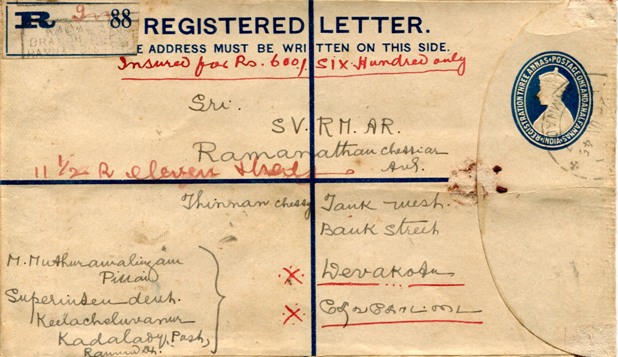 R 88
REGISTERED LETTER.
E ADDRESS MUST BE WRITTEN ON THIS SIDE.
Insured for Rs. 600/. Six Hundred only
REGISTRATION THREE ANNAS • POSTAGE ONE AND A HALF ANNAS • INDIA
Sri.
SV. RM. AR.
Ramanathan chettiar
11 1/2 R eleven
Thinnan chetty Tank west.
Bank Street
Devakotai
தேவகோட்டை
M. Muthuramalingam
Pillai
Superintendent.
Keelacheluvanur
Kadalady, Post,